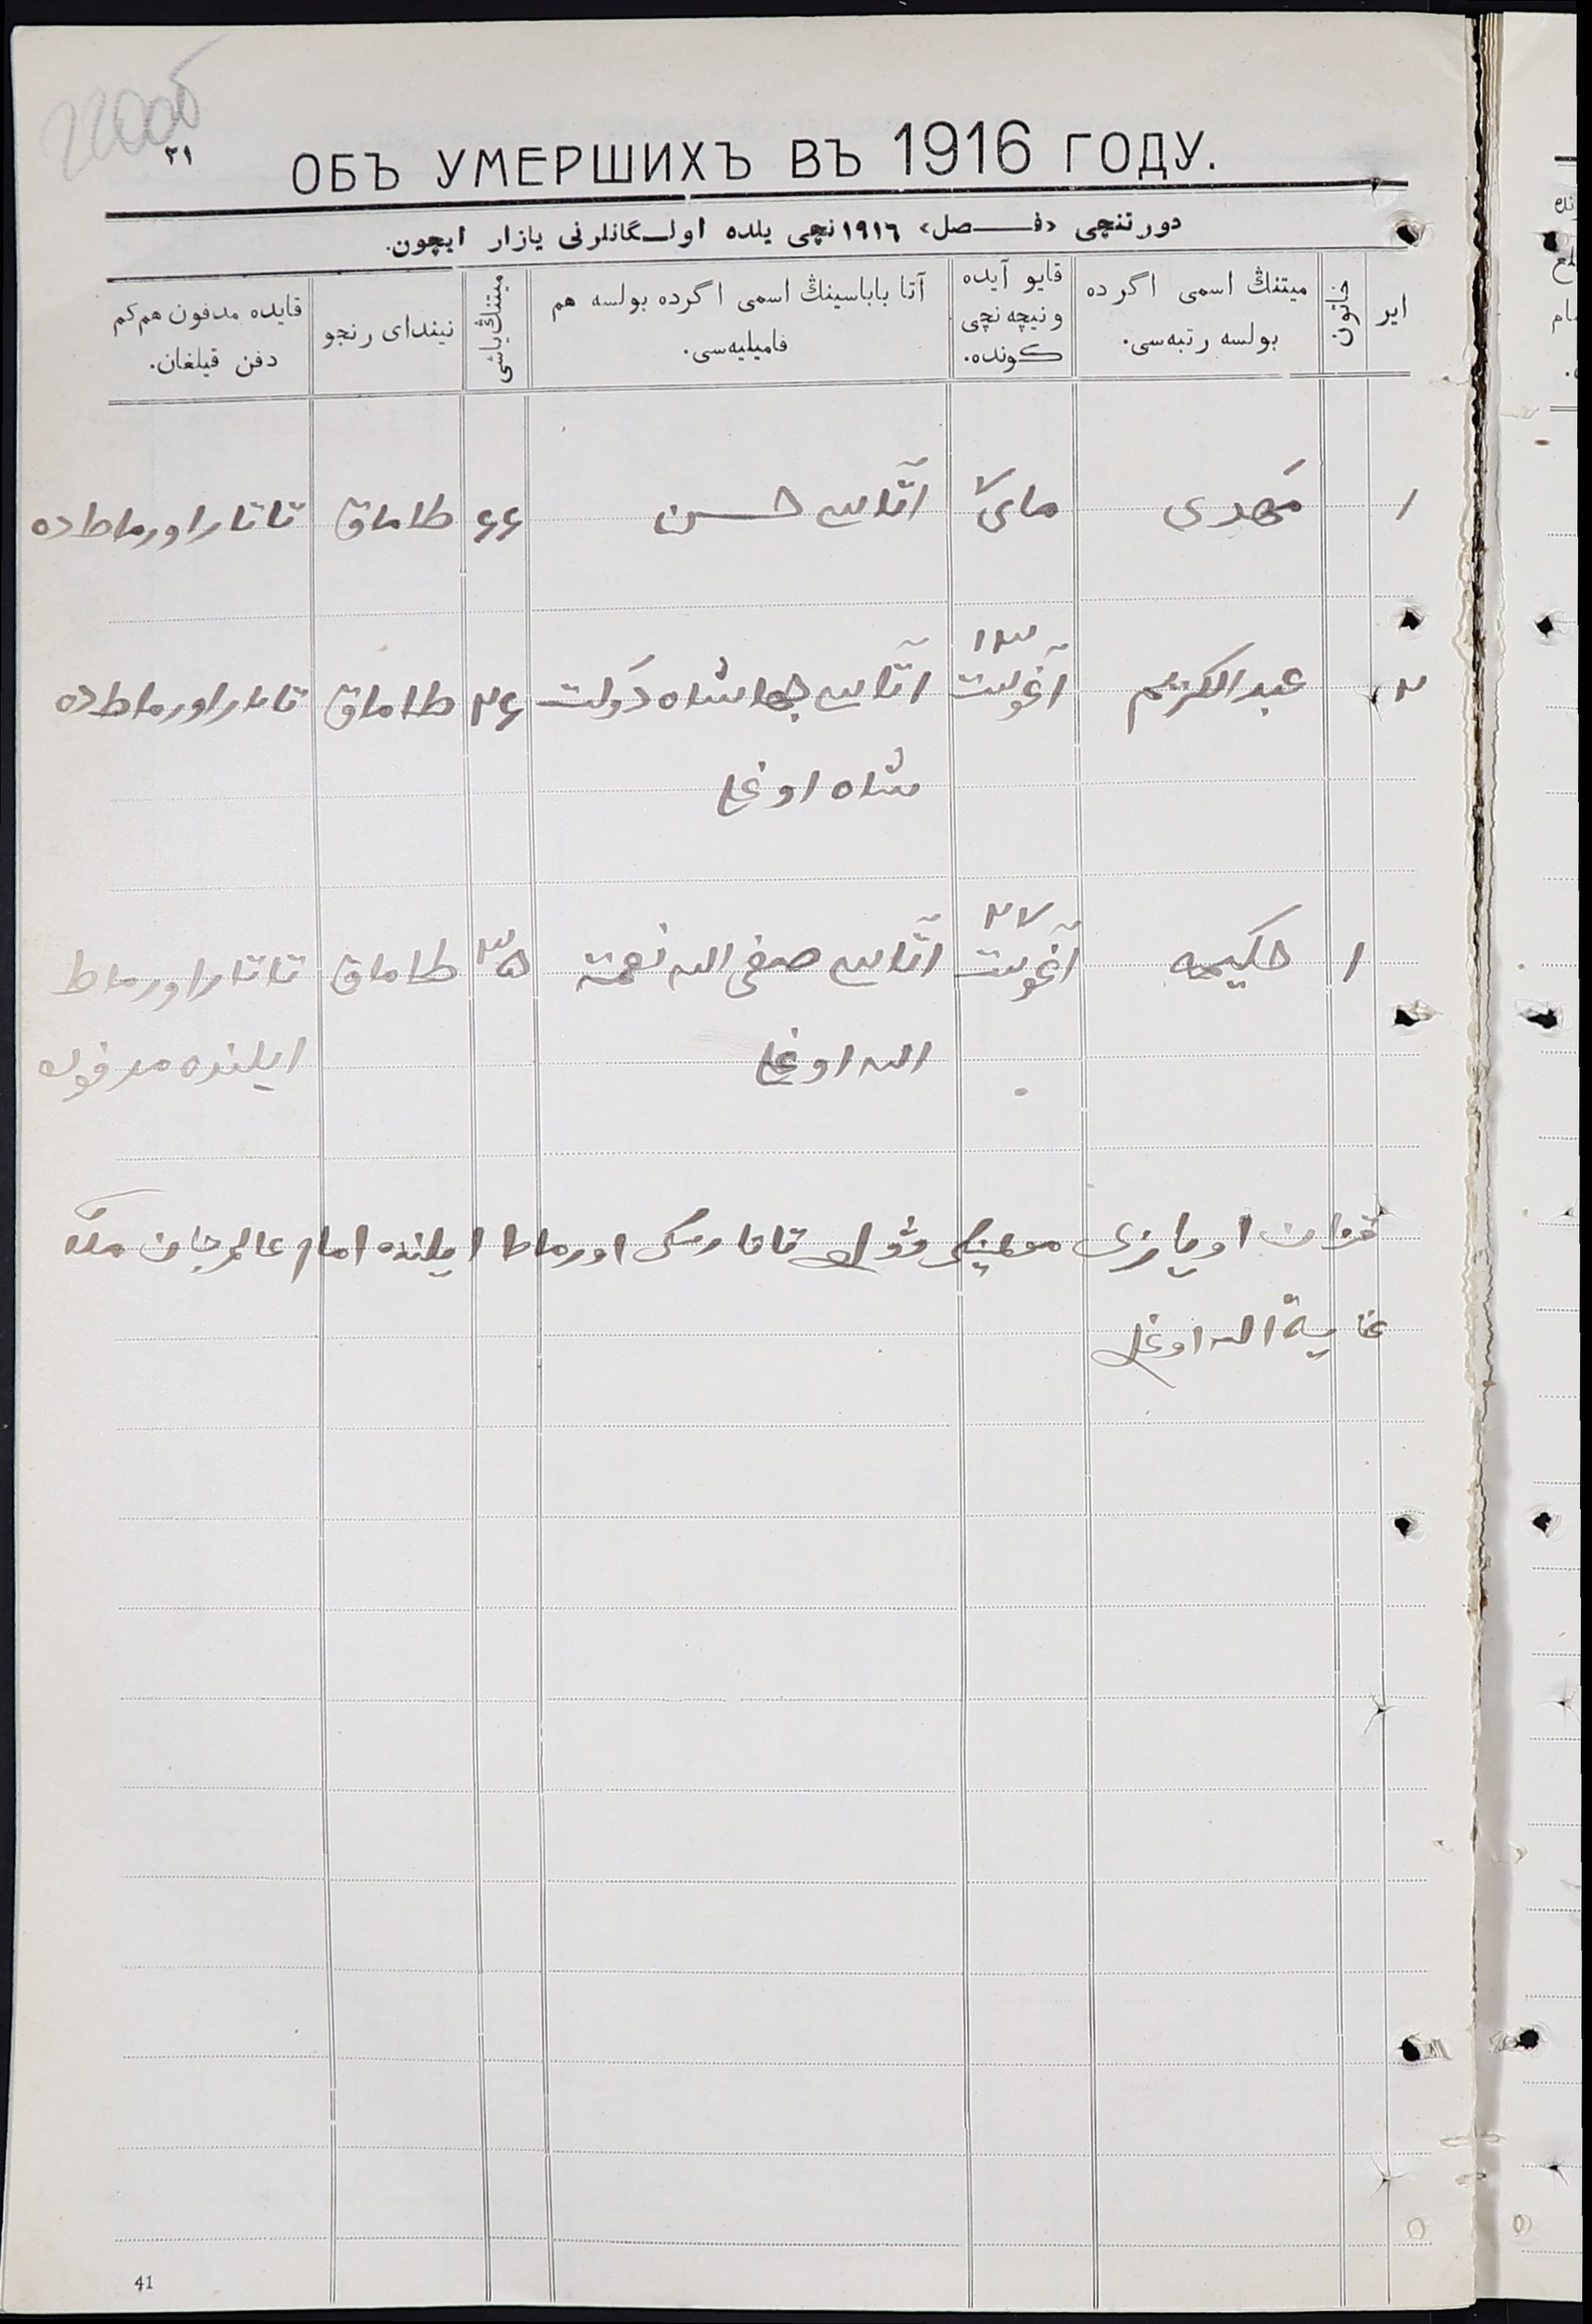 ٢١
ОБЪ УМЕРШИХЪ ВЪ 1916 ГОДУ.
دورتنچی «فصل» ١٩١٦نچی یلده اولگانلرنی یازار ایچون.
ایر
خاتون
میتنڭ اسمی اگر ده
بولسه رتبه‌سی.
قایو آیده
ونیچه نچی
کونده.
آتا باباسینڭ اسمی اگرده بولسه هم
فامیلیه‌سی.
میتنڭ یاشی
نیندای رنجو
قایده مدفون هم کم
دفن قیلغان.
١ مهدی مای ٧ آتاسی حسن ۶۶ طاماق تاتار اورماط ده
٢ عبدالکریم ١٣ آغوست آتاسی جهانشاه دولت ٢۶ طاماق تاتار اورماط ده
شاه اوغلی
١ حکیمه ٢٧ آغوست آتاسی صفی الله نعمة ٣۵ طاماق تاتار اورماط
الله اوغلی ایلنده مدفون
قزان اویازی تاتارسکی اورماط ایلنده امام عالمرجان ملا
عنایة الله اوغلی
41